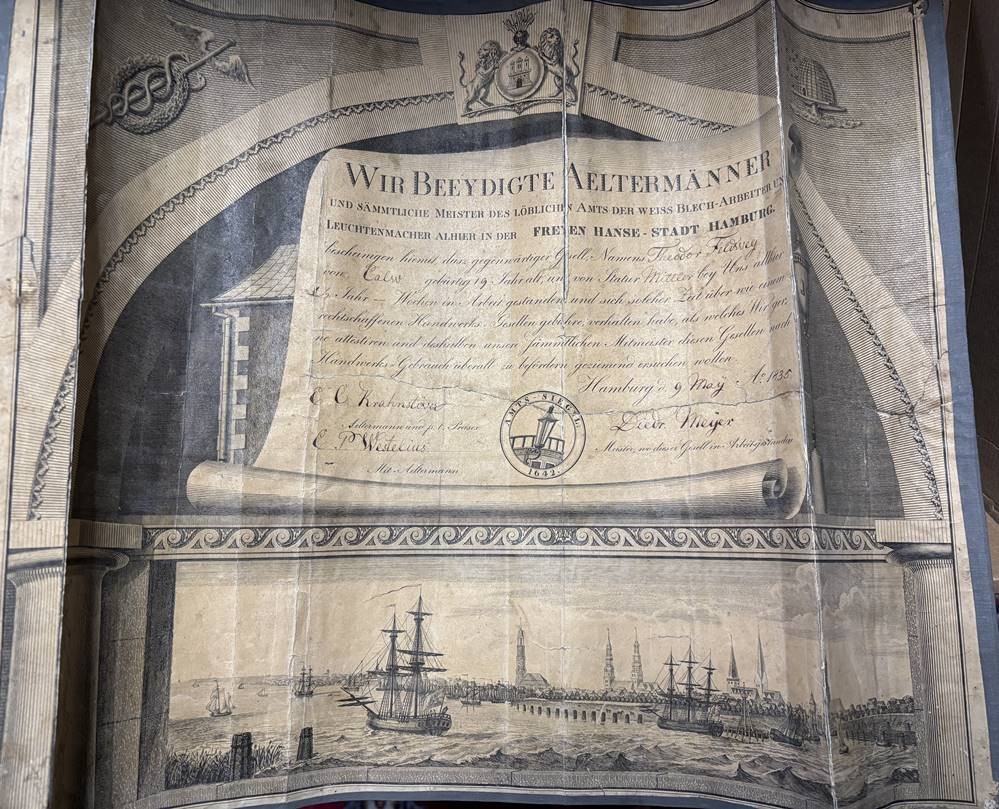 WIR BEEYDIGTE AELTERMÄNNER
UND SÄMMTLICHE MEISTER DES LÖBLICHEN AMTS DER WEISS BLECH-ARBEITER UN
LEUCHTENMACHER ALHIER IN DER FREYEN HANSE-STADT HAMBURG.
bescheinigen hiemit, dass gegenwärtiger Gesell, Namens Theodor
von Calw gebürtig 19 Jahr alt, und von Statur Mittler bey Uns allhier
Jahr — Wochen in Arbeit gestanden und sich solcher Zeit über wie einem
rechtschaffenen Handwerks-Gesellen gebühre, verhalten habe, als welches Wir ger,
ne attestiren und deshalben unsere sämmtlichen Mitmeister diesen Gesellen nach
Handwerks-Gebrauch überall zu befördern geziemend ersuchen wollen.
Hamburg d. 9 May Ao. 1835
E C
Aeltermann und p. t. Präses
Diedr. Meyer
Meister, wo dieser Gesell in Arbeit gestanden
C. P. Westelius
Mit-Aeltermann
AMTS-SIEGEL
1642.